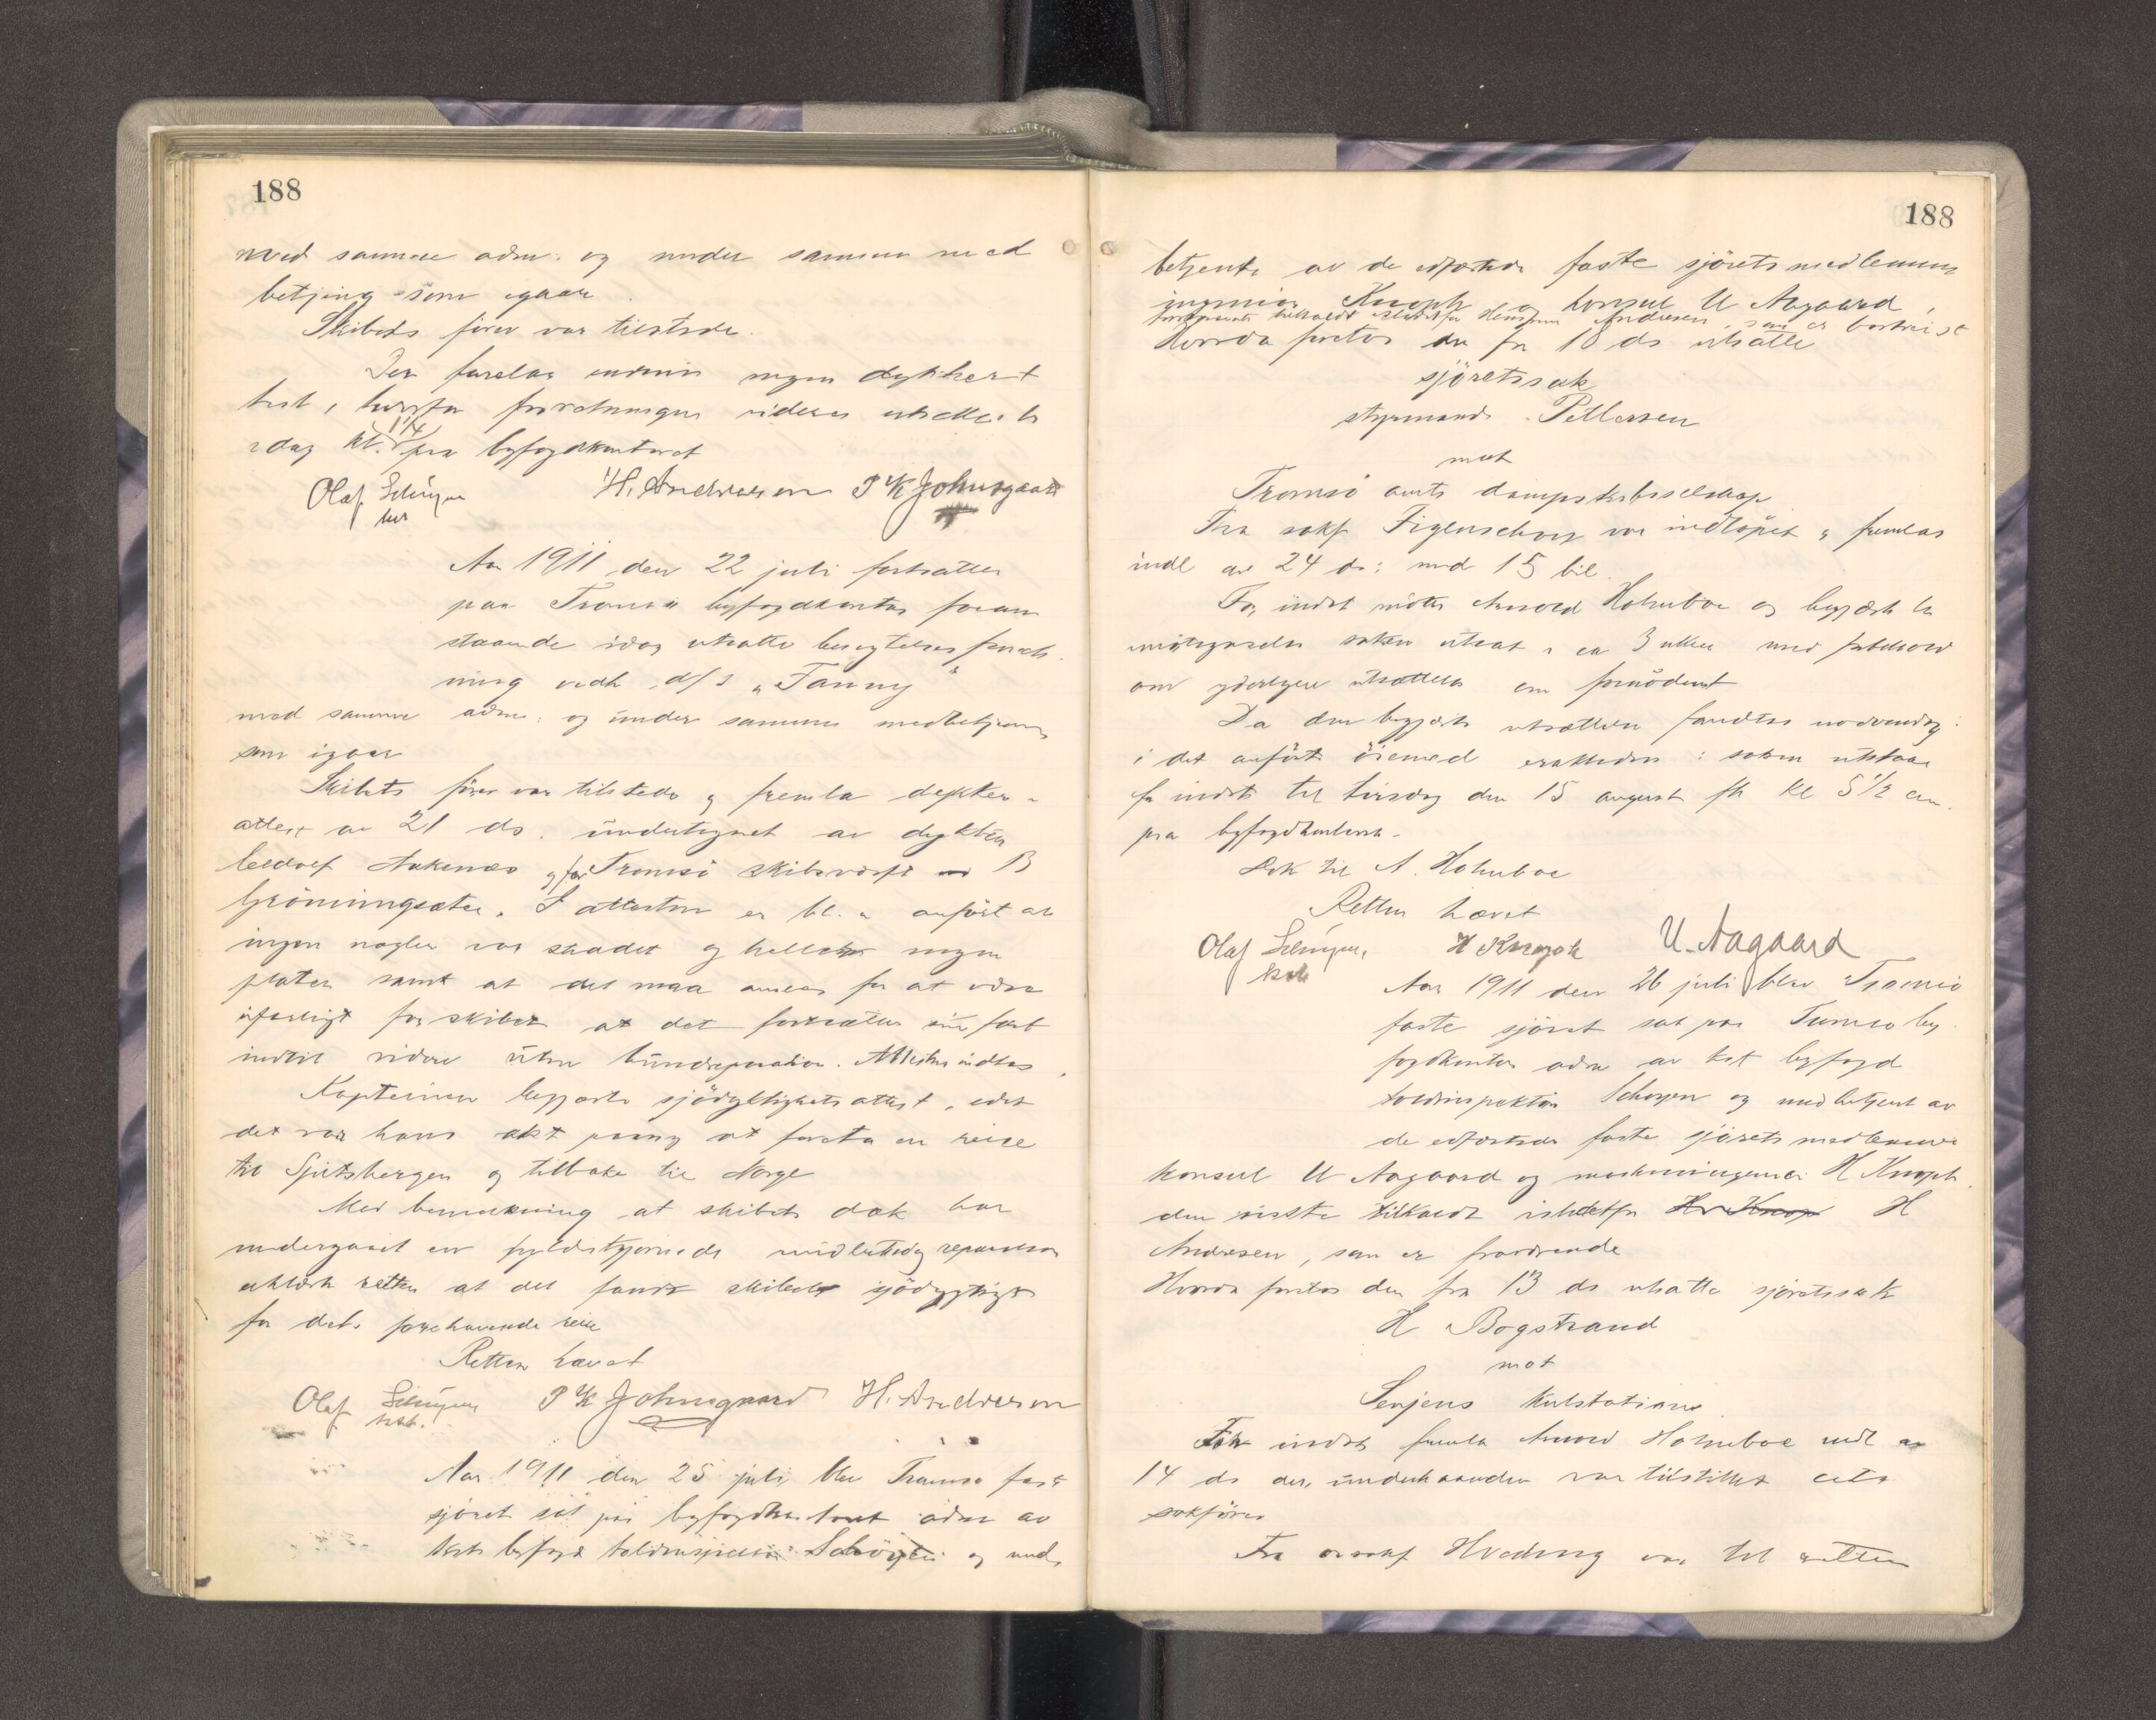 188
med samme adm. og under samme med
betjening som igaar.
Skibets fører var tilstede.
Der forelaa endnu ingen dykkerat
test, hvorfor forretningen videre utsattes til
idag kl. 1 1/4 paa byfogdkontoret
Olaf Schøyen
kst
H. Andresen P K Johnsgaard
Aar 1911 den 22 juli fortsattes
paa Tromsø byfogdkontor foran
staaende idag utsatte besigtelsesforret
ning vedk d/s "Fanny"
med samme adm: og under samme medbetjening
som igaar
Skibets fører var tilstede og fremla dykker-
attest av 21 ds. undertegnet av dykker
Aakenæs og for Tromsø skibsværft B
Grønningsæter. I attesten er bl. a anført at
ingen nagler var skadet og hellere ingen
plater samt at det maa ansees for at være
ufarligt for skibet at det fortsætter sin fart
indtil videre uten bundreparation. Attesten indtas
Kapteinen begjærte sjødygtighetsattest, idet
det var hans akt paany at foreta en reise
til Spitsbergen og tilbake til Norge
Med bemerkning at skibets dæk har
undergaaet en fyldestgjørende midlertidig reparation
erklærte retten at det fandt skibet sjødygtigt
for dets forehavende reise
Retten hævet
Olaf Schøyen
kst.
P K Johnsgaard H. Andresen
Aar 1911 den 25 juli blev Tromsø faste
sjøret sat paa byfogdkontoret adm av
kst byfogd toldinspektør Schøyen og med
188
betjent av de edfæstede faste sjøretsmedlemmer
ingeniør Knoph og konsul U Aagaard,
førstnævnte tilkaldt istedetfor Andresen, som er bortreist
Hvorda foretos den fra 18 ds utsatte
sjøretssak
styrmand Pettersen
mot
Tromsø amts dampskibsselskap
Fra sakf Figenschou var indløpet og fremlas
indl av 24 ds: med 15 bil.
For indst møtte Arnold Holmboe og begjærte til
imøtegaaelse saken utsat i ca 3 uker med forbehold
om yderligere utsættelse om fornødent
Da den begjærte utsættelse fandtes nødvendig
i det anførte øiemed eraktedes: saken utstaar
for indst til tirsdag den 15 august fk kl 5 1/2 em.
paa byfogdkontoret.
Dok til A. Holmboe
Retten hævet
Olaf Schøyen
kst
H Knoph U. Aagaard
Aar 1911 den 26 juli blev Tromsø
faste sjøret sat paa Tromsø by
fogdkontor adm av kst byfogd
toldinspektør Schøyen og medbetjent av
de edfæstede faste sjøretsmedlemmer
konsul U Aagaard og maskiningeniør H Knoph
den sidste tilkaldt istedetfor H
Andresen, som er fraværende
Hvorda foretos den fra 13 ds utsatte sjøretssak
H Bogstrand
mot
Senjens Kulstation
For indst fremla Arnold Holmboe indl av
14 ds der underhaanden var tilstillet cits
sakfører
Fra orsakf Hveding var til retten